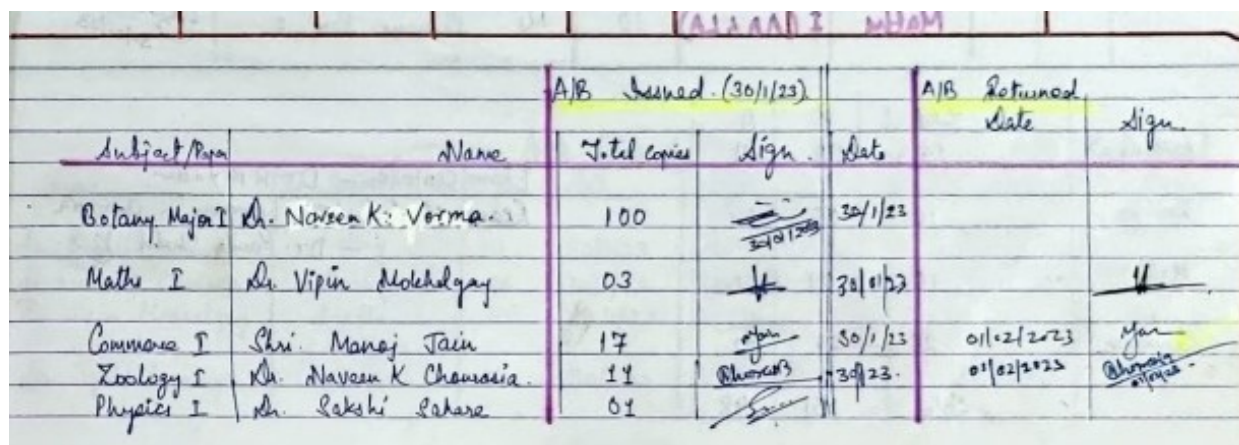 A/B Issued. (30/1/23) A/B Returned
Subject/Paper Name Total copies Sign. Date Date Sign.
Botany Major I Dr. Naveen K. Verma. 100 30/1/23
Maths I Dr. Vipin 03 30/01/23
Commerce I Shri. Manoj Jain 17 30/1/23 01/02/2023
Zoology I Dr. Naveen K Chourasia. 11 30/23. 01/02/2023
Physics I Dr. Sakshi Sahare 01